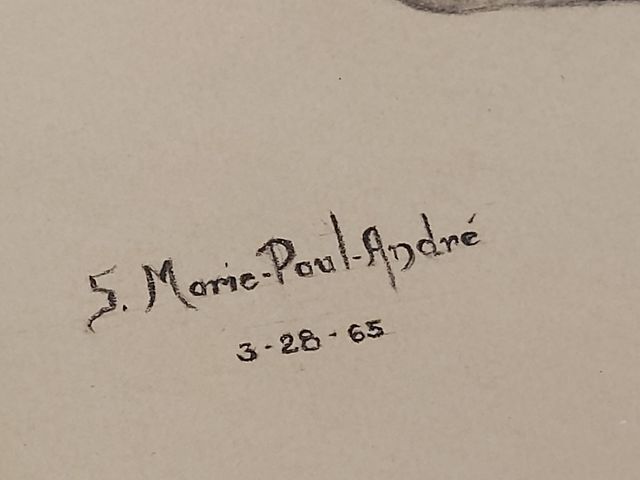 S. Marie-Paul-André
3-28-65